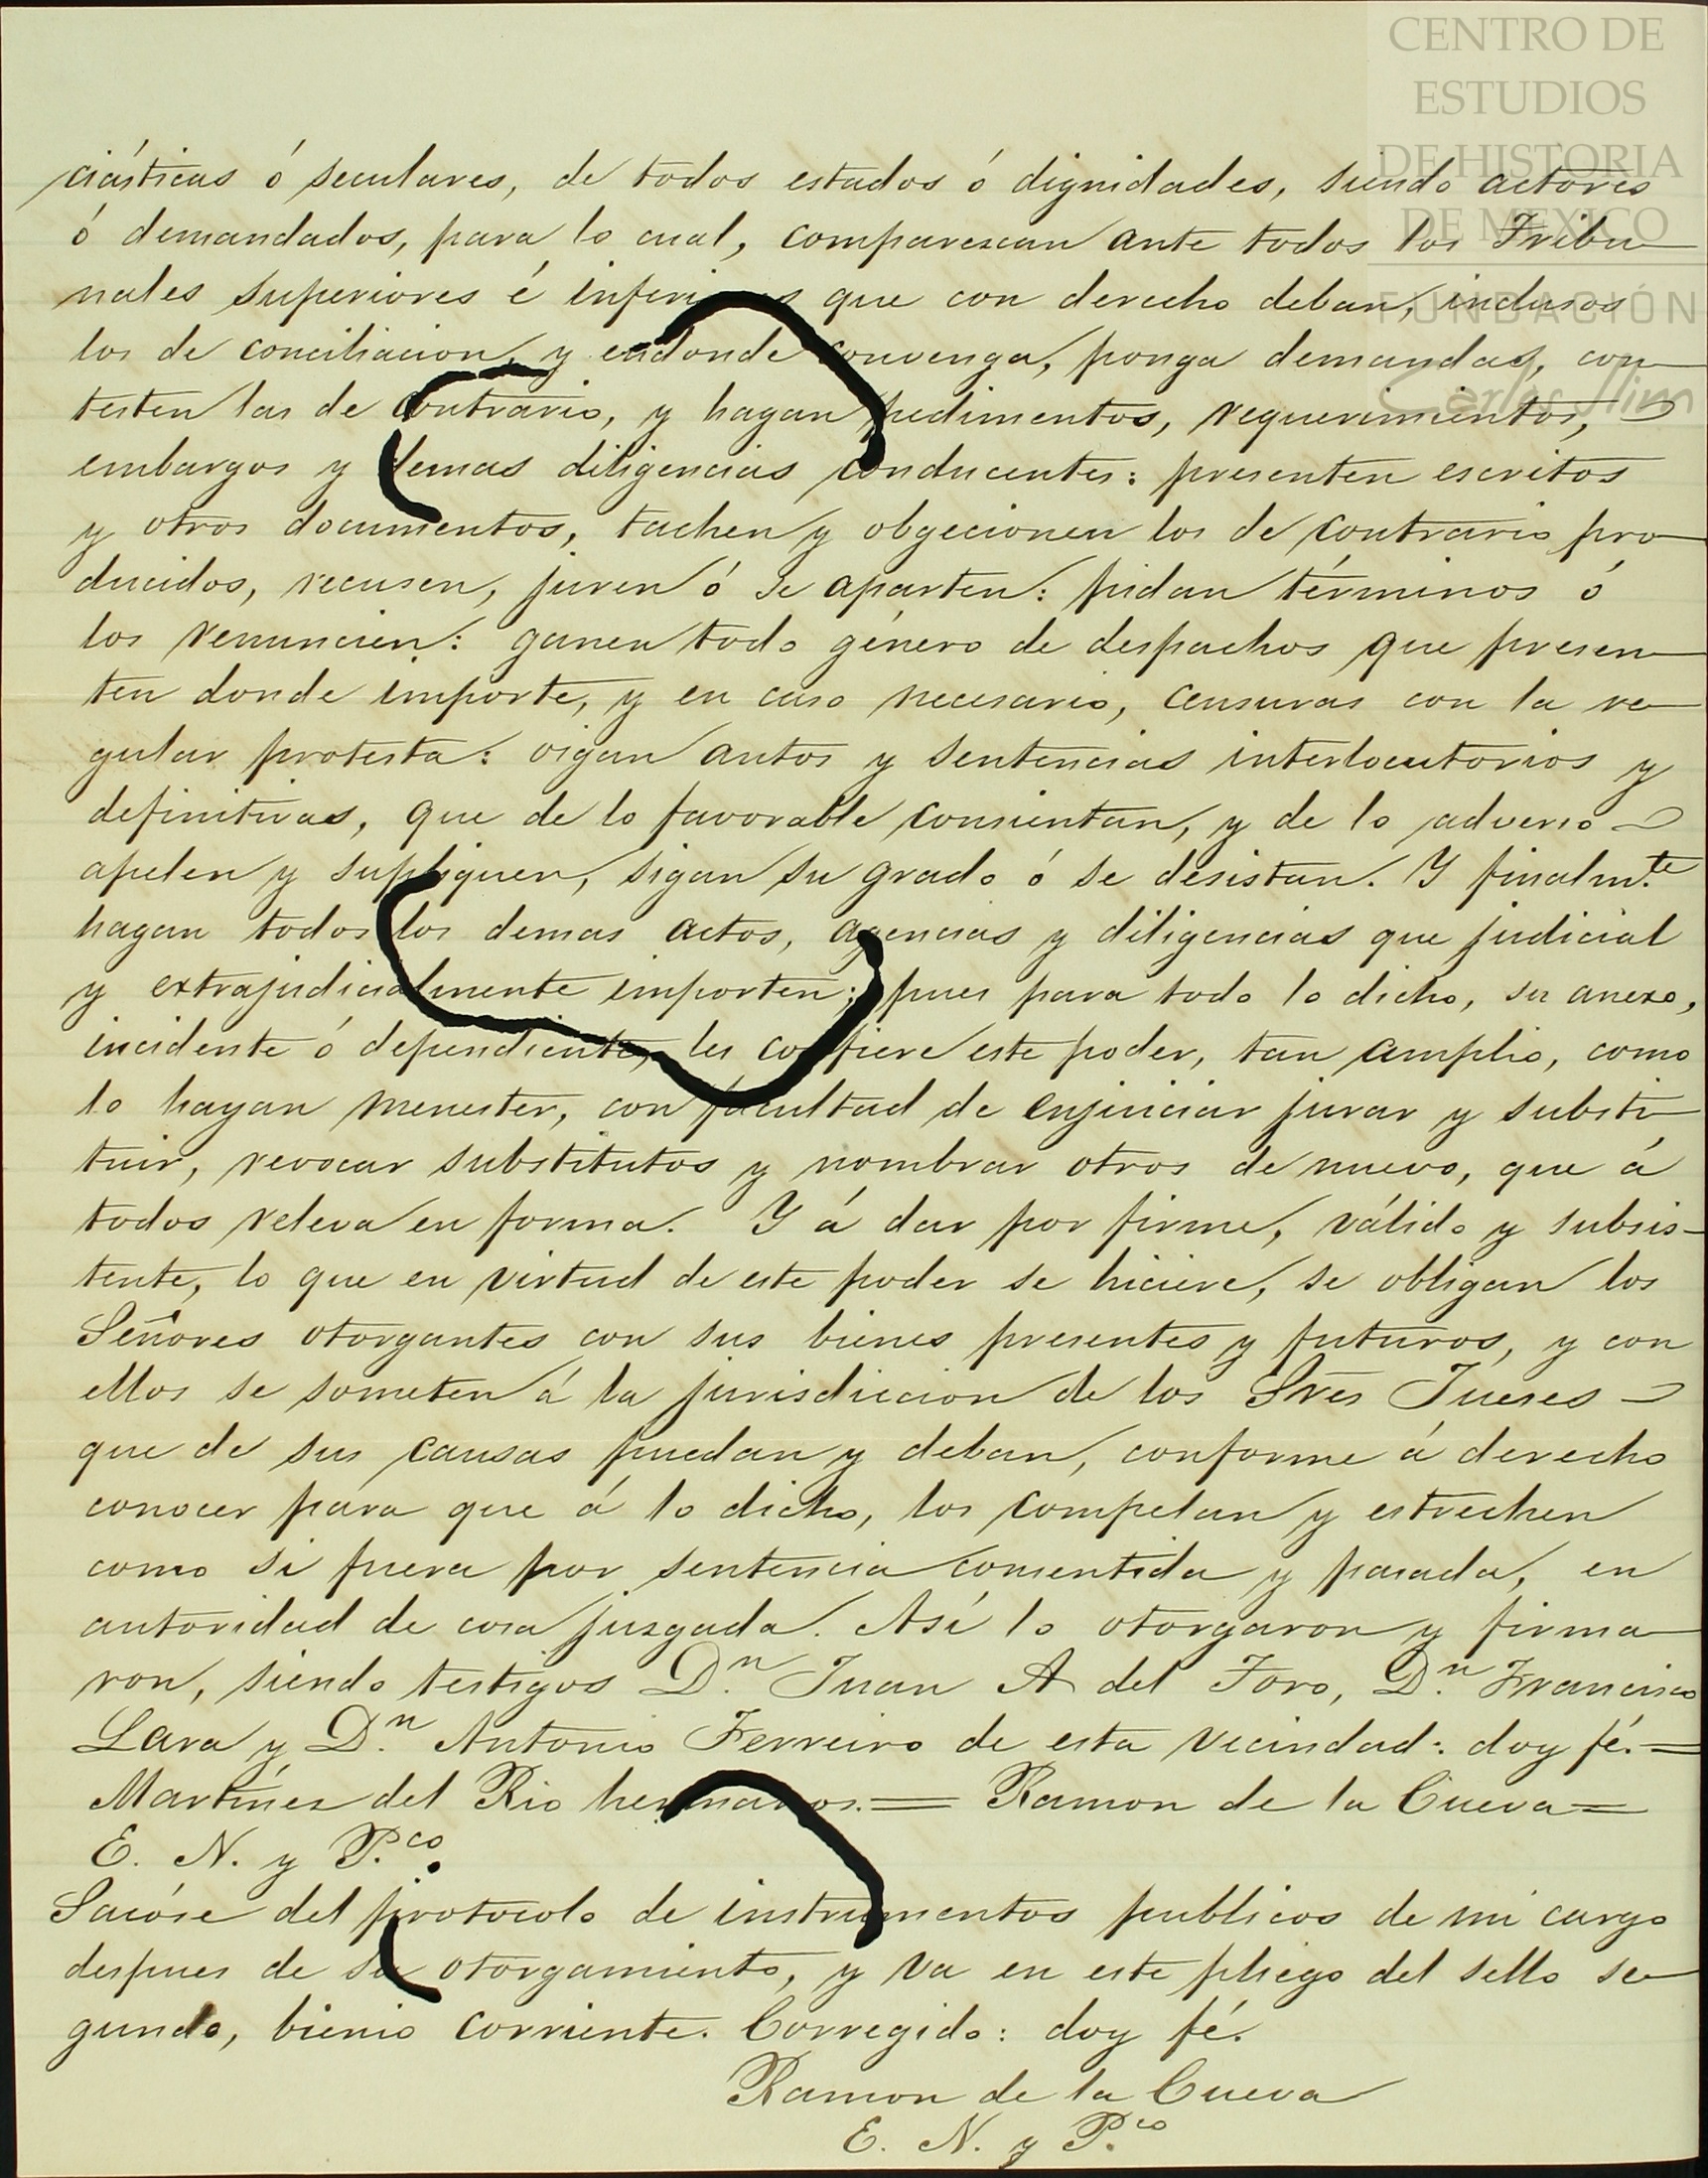 CENTRO DE
ESTUDIOS
DE HISTORIA
DE MEXICO
FUNDACIÓN
Carlos Slim
ciásticas ó seculares, de todos estados ó dignidades, siendo actores
ó demandados, para lo cual, comparescan ante todos los Tribu
nales superiores é inferiores que con derecho deban, inclusos
los de conciliacion, y endonde convenga, ponga demandas, con
testen las de contrario, y hagan pedimentos, requerimientos,
embargos y demas diligencias conducentes: presenten escritos
y otros documentos, tachen y obgecionen los de contrario pro
ducidos, recusen, juren ó se aparten: pidan términos ó
los renuncien: ganen todo género de despachos que presen
ten donde importe, y en caso necesario, censuras con la re
gular protesta: oigan autos y sentencias interlocutorios y
definitivas, que de lo favorable consientan, y de lo adverso
apelen y supliquen, sigan su grado ó se desistan. Y finalm.te
hagan todos los demas actos, agencias y diligencias que judicial
y extrajudicialmente importen; pues para todo lo dicho, su anexo,
incidente ó dependiente, les confiere este poder, tan amplio, como
lo hayan menester, con facultad de enjuiciar jurar y substi
tuir, revocar substitutos y nombrar otros de nuevo, que á
todos releva en forma. Y á dar por firme, válido y subsis-
tente, lo que en virtud de este poder se hiciere, se obligan los
Señores otorgantes con sus bienes presentes y futuros, y con
ellos se someten á la jurisdiccion de los Sres Jueses
que de sus causas puedan y deban, conforme á derecho
conocer para que á lo dicho, los compelan y estrechen
como si fuera por sentencia consentida y pasada, en
autoridad de cosa jusgada. Así lo otorgaron y firma
ron, siendo testigos D.n Juan A del Toro, D.n Francisco
Lara y D.n Antonio Ferreiro de esta vecindad: doy fé.=
Martínez del Rio hermanos.= Ramon de la Cueva=
E. N. y P.co
Sacóse del protocolo de instrumentos publicos de mi cargo
despues de su otorgamiento, y va en este pliego del sello se
gundo, bienio corriente. Corregido: doy fé.
Ramon de la Cueva
E. N. y P.co